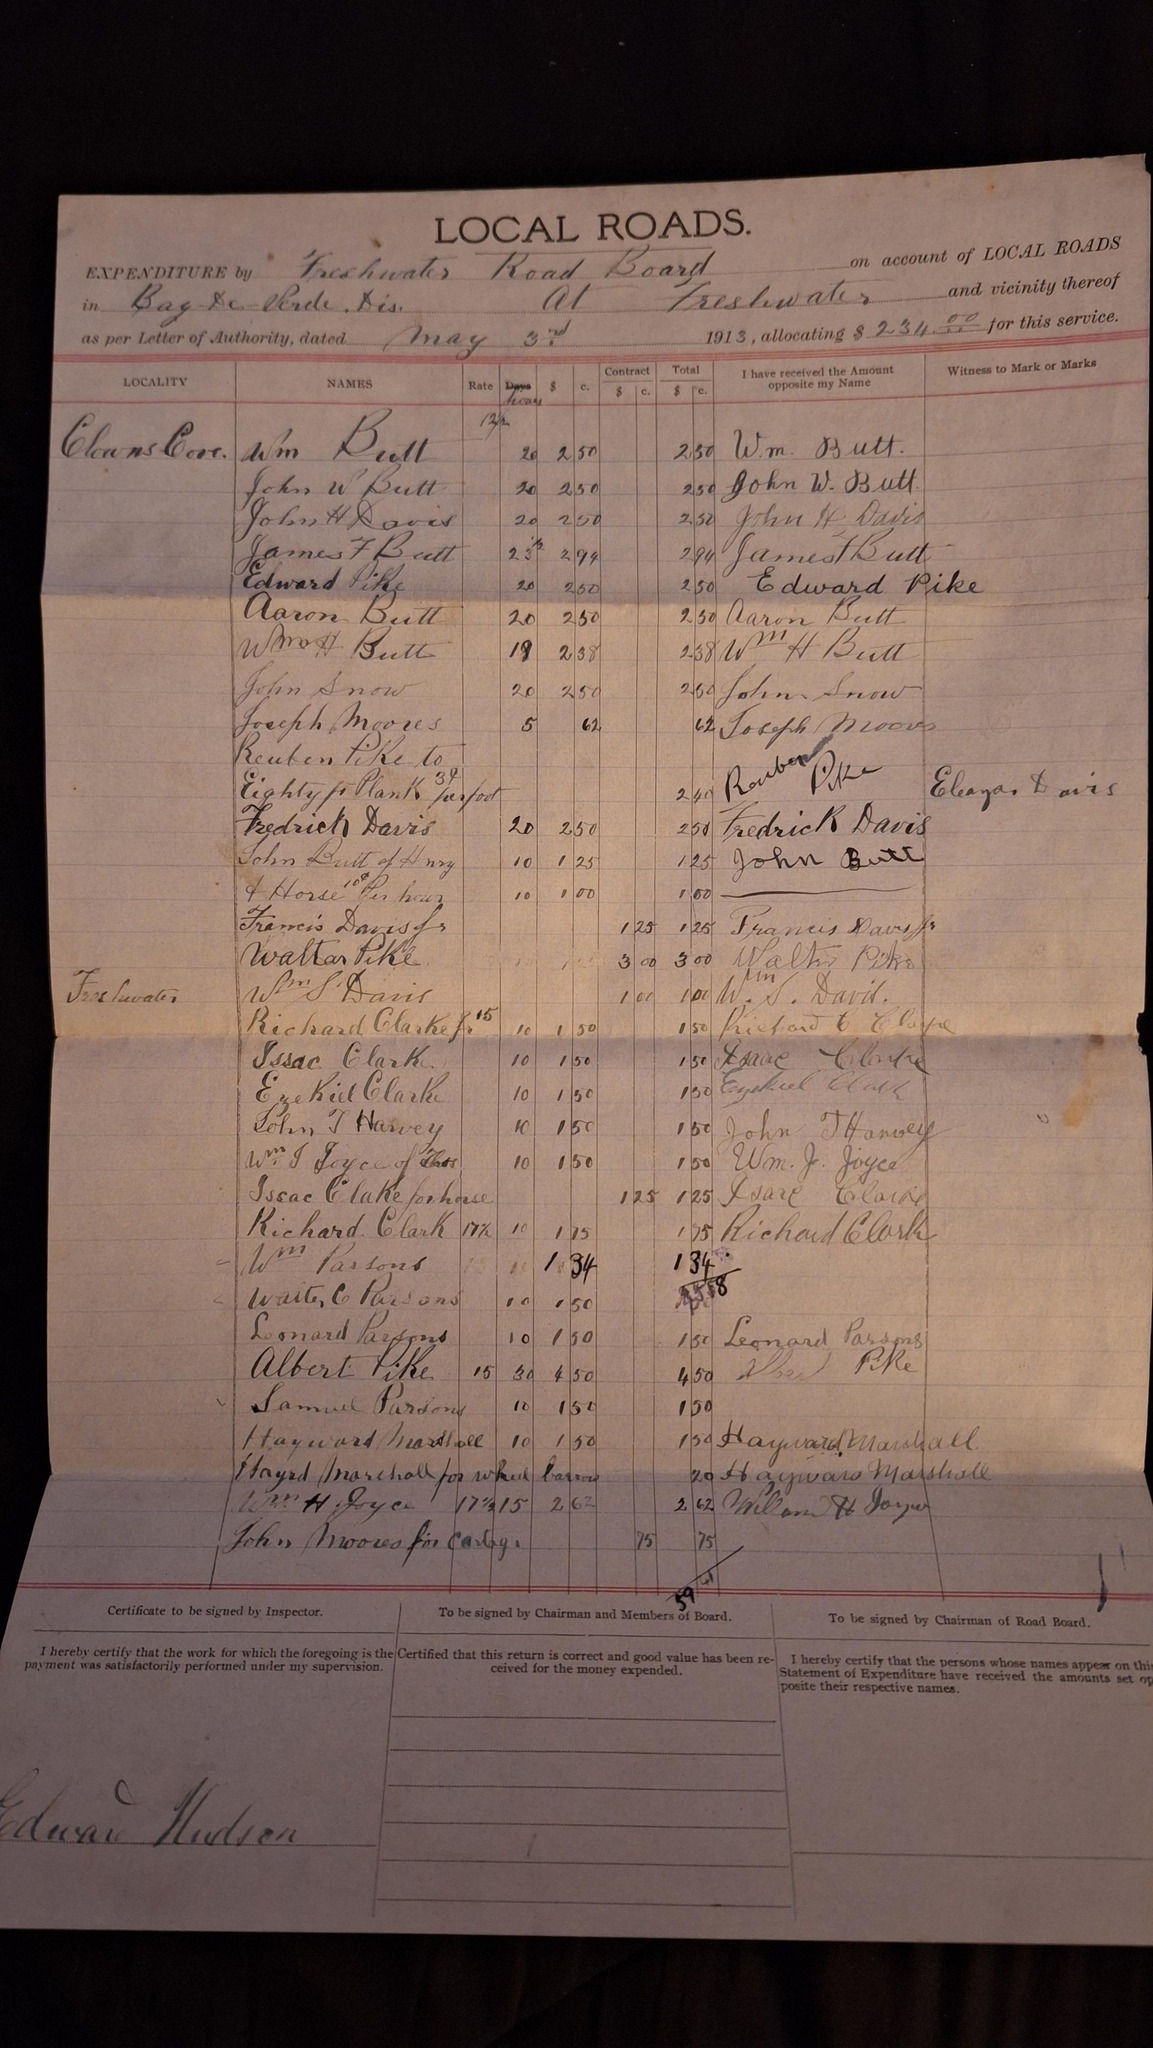 LOCAL ROADS.
EXPENDITURE by Freshwater Road Board on account of LOCAL ROADS
in Bay De Verde. Dis. At Freshwater and vicinity thereof
as per Letter of Authority, dated May 3rd 1913, allocating $ 234.00 for this service.
LOCALITY NAMES Rate Days hours $ c. Contract $ c. Total $ c. I have received the Amount opposite my Name Witness to Mark or Marks
12½
Clowns Cove. Wm Butt 20 2 50 2 50 W.m. Butt.
John W Butt 20 2 50 2 50 John W. Butt
John H Davis 20 2 50 2 50 John H Davis
James F Butt 23½ 2 94 2 94 James F Butt
Edward Pike 20 2 50 2 50 Edward Pike
Aaron Butt 20 2 50 2 50 Aaron Butt
Wm H Butt 19 2 38 2 38 Wm H Butt
John Snow 20 2 50 2 50 John Snow
Joseph Moores 5 62 62 Joseph Moores
Reuben Pike to
Eighty ft Plank 3¢ per foot 2 40 Reuben Pike Eleazar Davis
Fredrick Davis 20 2 50 2 50 Fredrick Davis
John Butt of Henry 10 1 25 1 25 John Butt
& Horse 10¢ Per hour 10 1 00 1 00
Francis Davis Jr 1 25 1 25 Francis Davis Jr
Walter Pike 3 00 3 00 Walter Pike
Freshwater Wm S Davis 1 00 1 00 Wm. S. David.
Richard Clarke Jr 15 10 1 50 1 50 Richard C Clarke
Issac Clarke 10 1 50 1 50 Isaac Clarke
Ezekiel Clarke 10 1 50 1 50 Ezekiel Clark
John T Harvey 10 1 50 1 50 John T Harvey
Wm J Joyce of Thos 10 1 50 1 50 Wm. J. Joyce
Issac Clake for horse 1 25 1 25 Isaac Clarke
Richard Clark 17½ 10 1 75 1 75 Richard Clark
Wm Parsons 1 34 1 34
Walter C Parsons 10 1 50
Leonard Parsons 10 1 50 1 50 Leonard Parsons
Albert Pike 15 30 4 50 4 50 Pike
Samuel Parsons 10 1 50 1 50
Hayward Marshall 10 1 50 1 50 Hayward Marshall
Hayrd Marshall for wheel barrow 20 Hayward Marshall
Wm H Joyce 17½ 15 2 62 2 62 William H Joyce
John Moores for 75 75
59
Certificate to be signed by Inspector. To be signed by Chairman and Members of Board. To be signed by Chairman of Road Board.
I hereby certify that the work for which the foregoing is the payment was satisfactorily performed under my supervision.
Certified that this return is correct and good value has been received for the money expended.
I hereby certify that the persons whose names appear on this Statement of Expenditure have received the amounts set opposite their respective names.
Edward Hudson